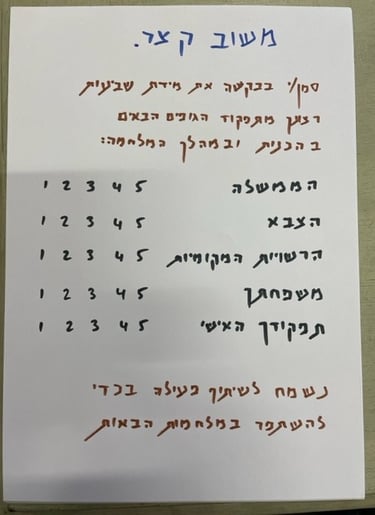 משוב קצר.
סמן/י בבקשה את מידת שביעות
רצונך מתפקוד הגופים הבאים
בהכנות ובמהלך המלחמה:
הממשלה 1 2 3 4 5
הצבא 1 2 3 4 5
הרשויות המקומיות 1 2 3 4 5
משפחתך 1 2 3 4 5
תפקודך האישי 1 2 3 4 5
נשמח לשיתוף פעולה בכדי
להשתפר במלחמות הבאות